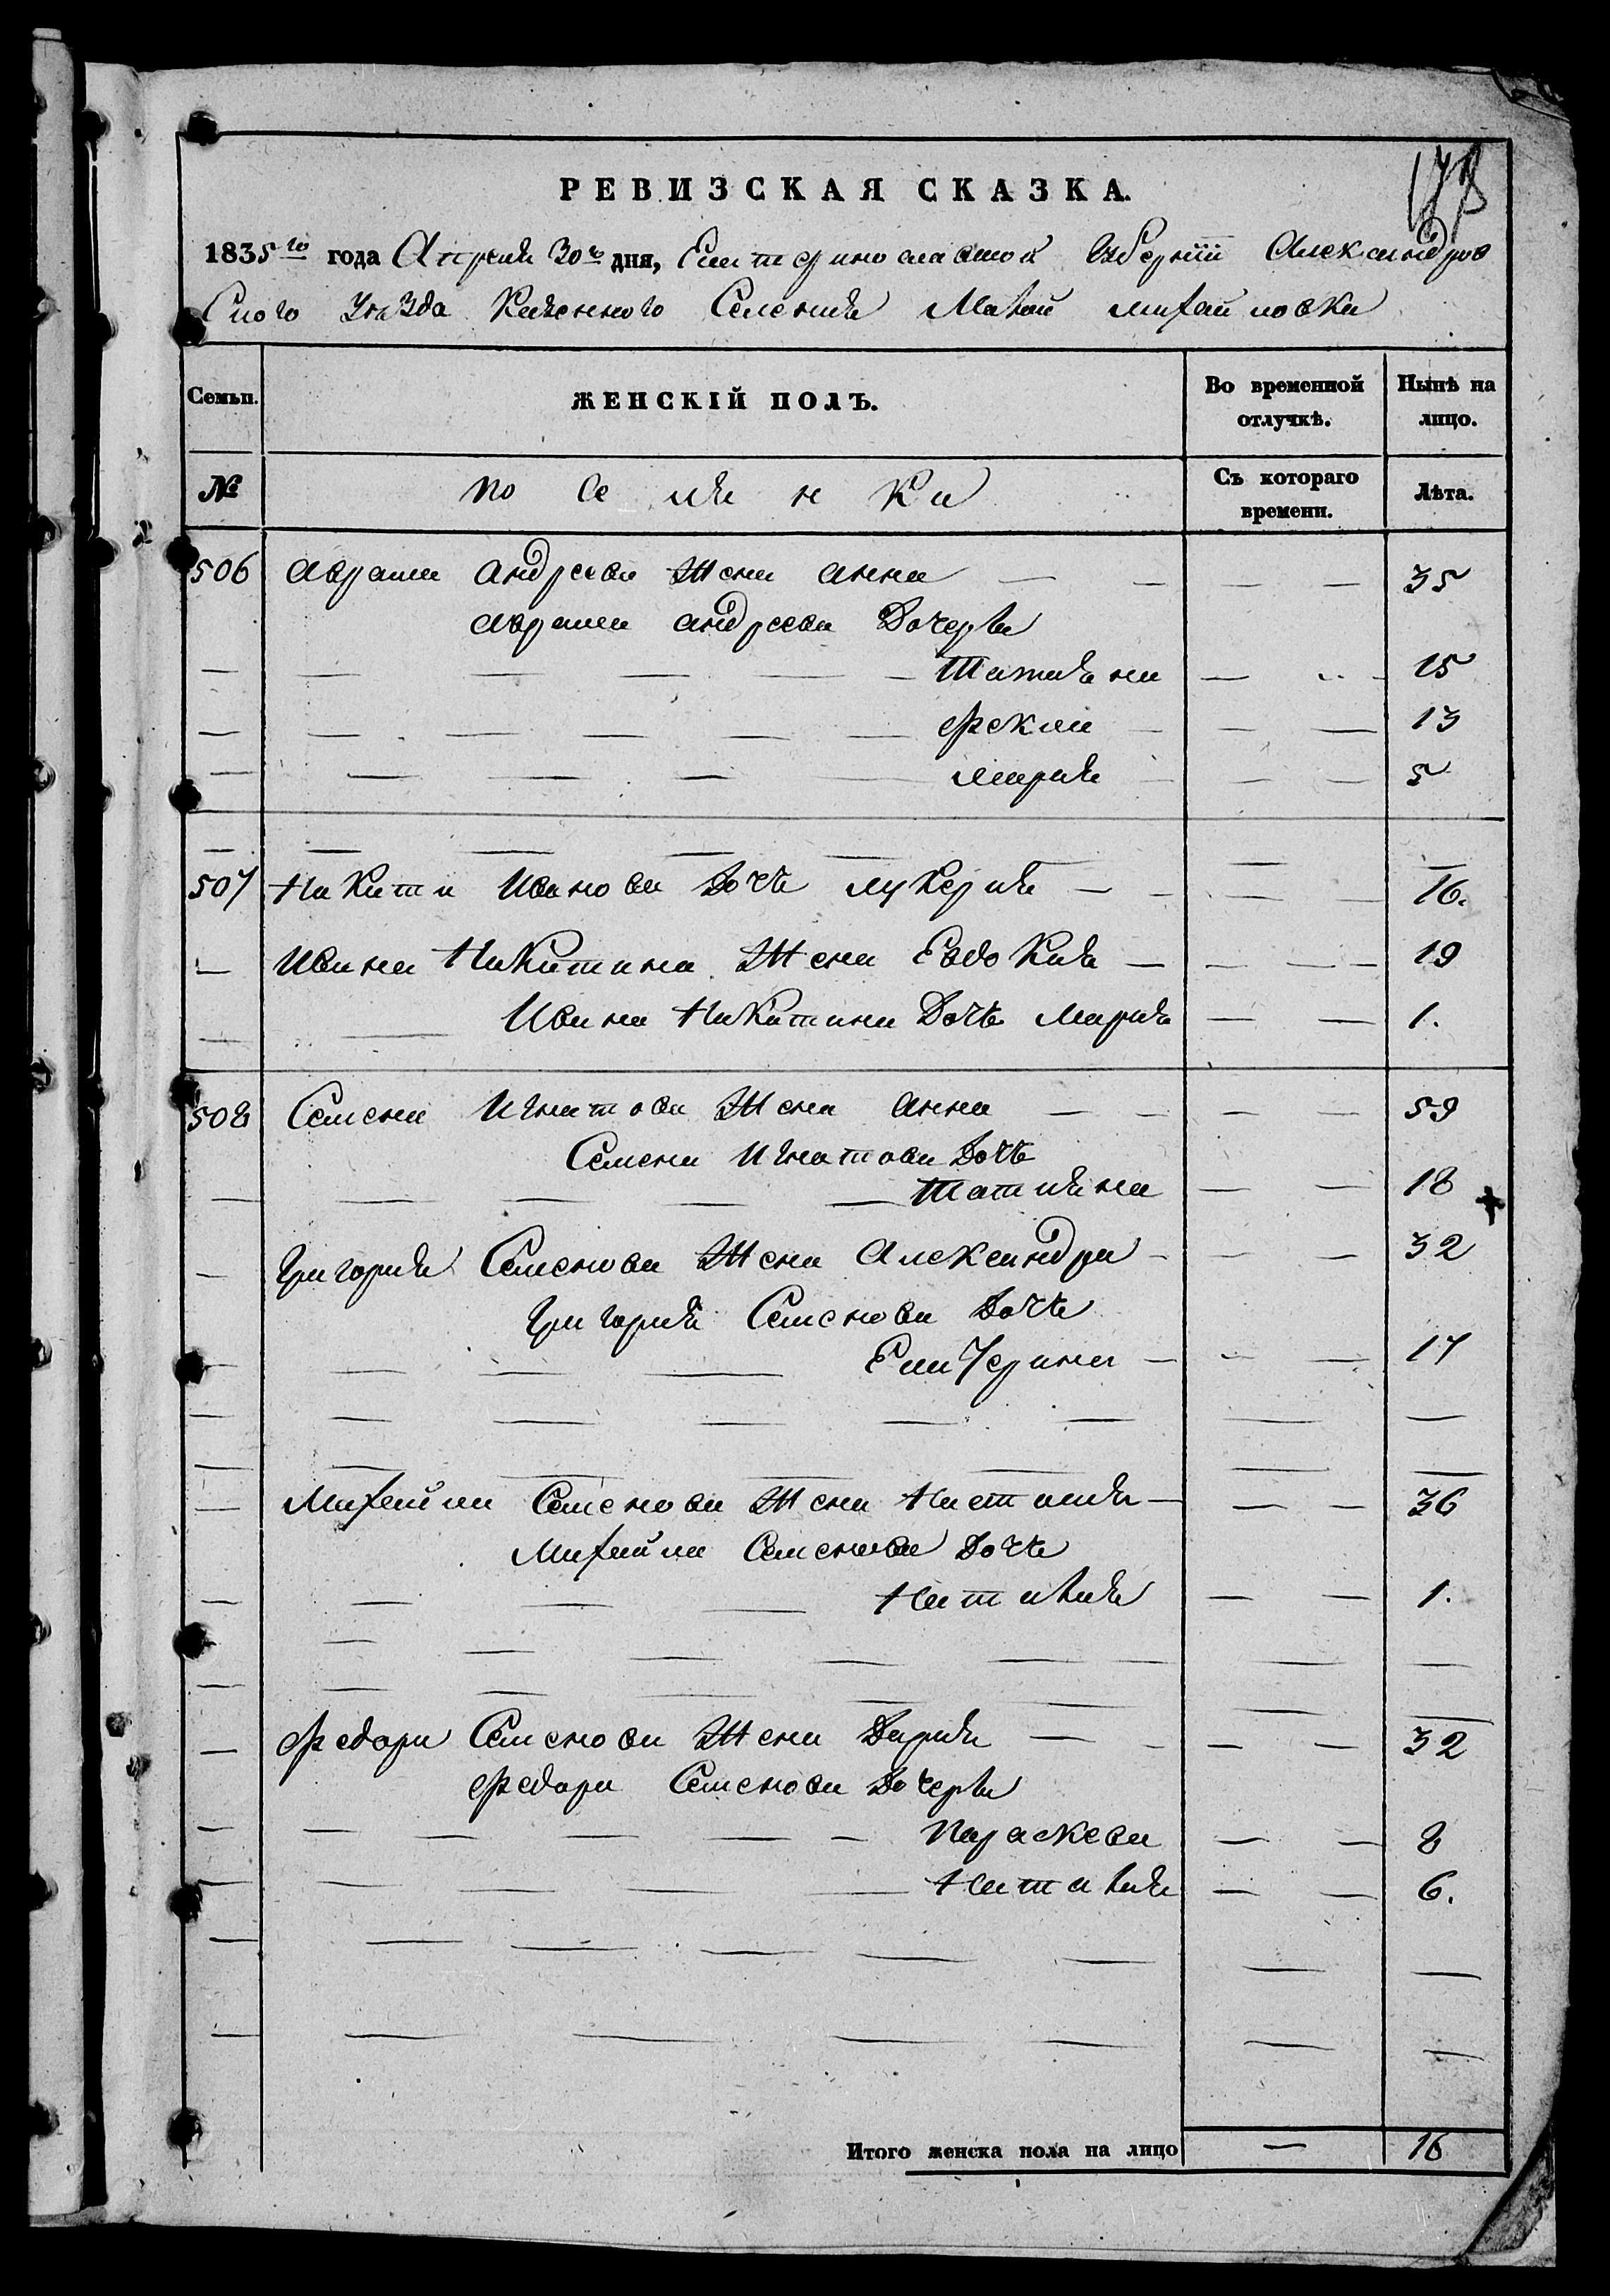 РЕВИЗСКАЯ СКАЗКА.
1835го года Апреля 30го дня, Екатеринославской Губернiи Александров
ского Уезда Казенного Селения Малой михайловки
Семьи. ЖЕНСКІЙ ПОЛЪ. Во временной отлучкѣ. Нынѣ на лицо.
№ Поселянки Съ котораго времени. Лѣта.
506 Аврама Андреева Жена Анна — — — — 35
Аврама Андреева Дочерьи
— — — — — — Татияна — — 15
— — — — — — Фекла — — — 13
— — — — — Мария — — — 5
— — — — — — —
507 Никиты Иванова Дочь Лукерия — — — — 16.
— Ивана Никитина Жена Евдокия — — — — 19
— — Ивана Никитина Дочь Мария — — 1.
508 Семена Игнатова Жена Анна — — — — 59
Семена Игнатова Дочь
— — — — — Татияна — — 18
— Григория Семенова Жена Александра — — — 32
Григория Семенова Дочь
— — — — Катерина — — — 17
— — — — — — — —
— — — — — — —
— Михайла Семенова Жена Настасия — — — 36
Михайла Семенова Дочь
— — — — Наталия — — 1.
— — — — — — — —
— — — — — — — —
— Федора Семенова Жена Дария — — — — 32
Федора Семенова Дочерьи
— — — — — — Параскева — — 8
— — — — — — Наталия — — 6.
— — — — — — — —
— — — — — — —
Итого женска пола на лицо — 16